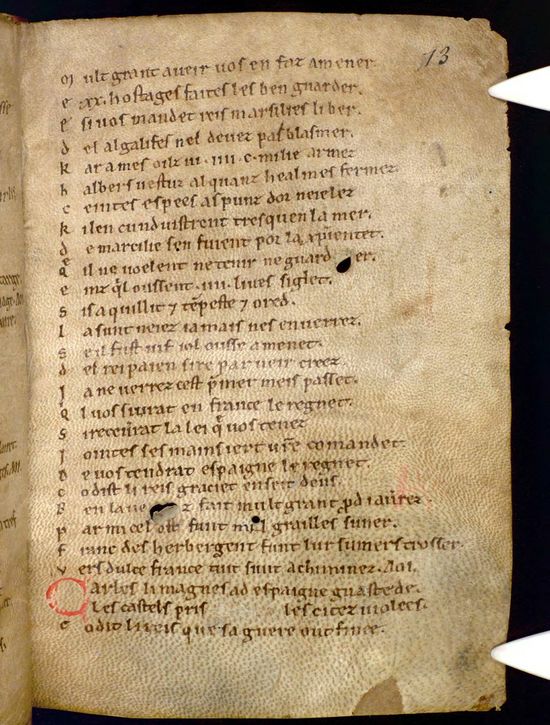 13
M ult grant aueir uos en faz amener
e .xx. hostages faites les ben guarder.
e si uos mandet reis marsilies li ber.
d el algalifes nel deuez pas blasmer.
k ar a mes oilz ui .iiii. c. milie armez
h albers uestuz alquanz healmes fermez
c eintes espees as punz dor neielez
k i len cunduistrent tresquen la mer.
d e marcilie sen fuient por la xp̃ientet.
q̃ il ne uoelent ne tenir ne guard er.
e inz q̃l oussent .iiii. liues siglet.
s is aquillit ⁊ tẽpeste ⁊ ored.
l a sunt neiez iamais nes enuerrez.
s e il fust uif iol ousse amenet.
d el rei paien sire par ueir creez
J a ne uerrez cest p̃mer meis passet.
q̃ l uos siurat en france le regnet.
s i receũrat la lei q̃ uos tenez
J ointes ses mains iert ur̃e comandet.
D e uos tendrat espaigne le regnet.
c o dist li reis graciet en seit deus.
B en laue z fait mult grant p̃d i aurez.
p ar mi cel ost funt mil grailles suner.
f ranc des herbergent funt lur sumers trosser
v ers dulce france tuit sunt achiminez. Aoi.
Carles li magnes ad espaigne guastede.
les castels pris les citez uiolees.
c o dit li reis que sa guere out finee.